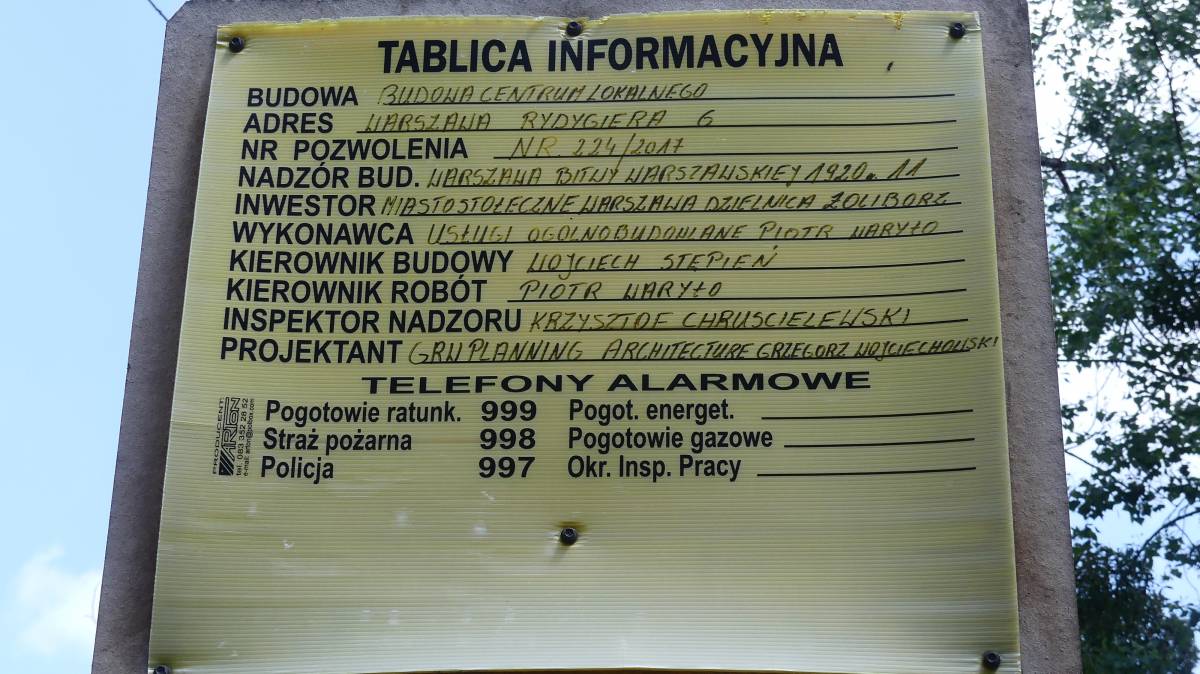 TABLICA INFORMACYJNA
BUDOWA BUDOWA CENTRUM LOKALNEGO
ADRES WARSZAWA RYDYGIERA 6
NR POZWOLENIA NR. 224/2017
NADZÓR BUD. WARSZAWA BITWY WARSZAWSKIEY 1920r. 11
INWESTOR MIASTO STOŁECZNE WARSZAWA DZIELNICA ŻOLIBORZ
WYKONAWCA USŁUGI OGOLNOBUDOWLANE PIOTR WARYŁO
KIEROWNIK BUDOWY WOJCIECH STĘPIEŃ
KIEROWNIK ROBÓT PIOTR WARYŁO
INSPEKTOR NADZORU KRZYSZTOF CHRUSCIELEWSKI
PROJEKTANT GRW PLANNING ARCHITECTURE GRZEGORZ WOJCIECHOWSKI
TELEFONY ALARMOWE
Pogotowie ratunk. 999 Pogot. energet.
Straż pożarna 998 Pogotowie gazowe
Policja 997 Okr. Insp. Pracy
PRODUCENT:
ARTON
tel. 083 352 28 52